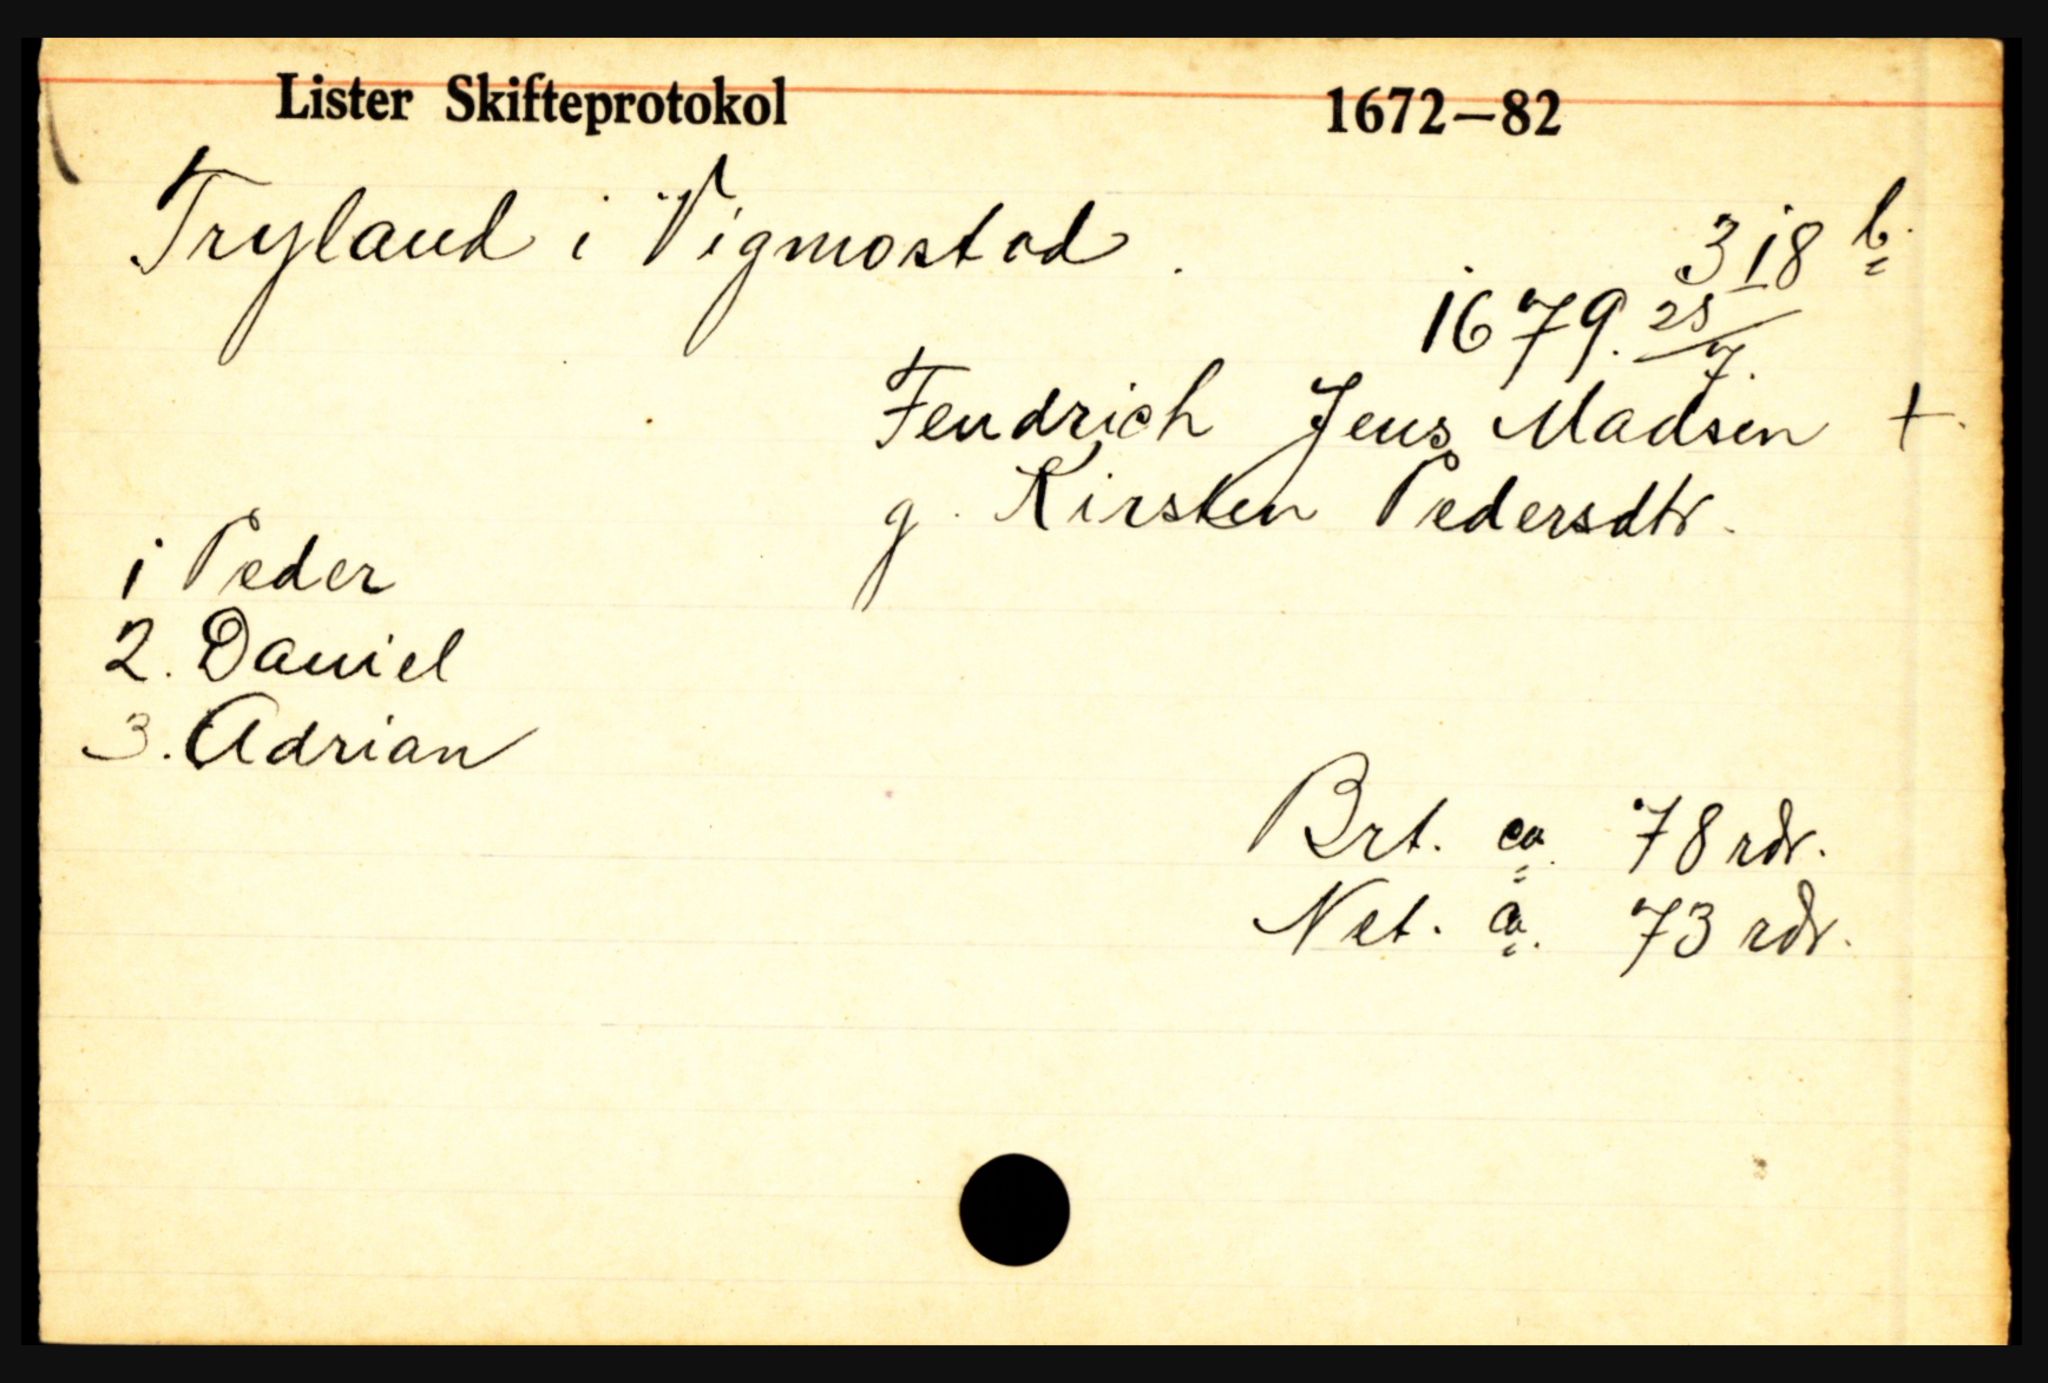 Lister Skifteprotokol 1672—82
Tryland i Vigmostad.
318 b.
1679. 25/7.
Fendrich Jens Madsen +.
g. Kirsten Pedersdtr.
1 Peder
2. Daniel
3. Adrian
Brt. ca. 78 rdr.
Net. ca. 73 rdr.